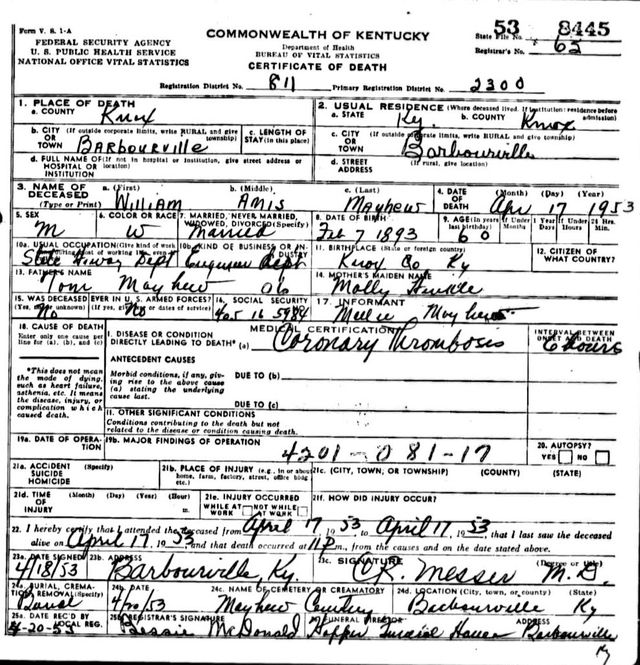 Form V. S. 1-A
COMMONWEALTH OF KENTUCKY
53 8445
FEDERAL SECURITY AGENCY
Department of Health
State File No.
U. S. PUBLIC HEALTH SERVICE
BUREAU OF VITAL STATISTICS
Registrar's No. 62
NATIONAL OFFICE VITAL STATISTICS
CERTIFICATE OF DEATH
Registration District No. 811 Primary Registration District No. 2300
1. PLACE OF DEATH
2. USUAL RESIDENCE (Where deceased lived. If institution: residence before admission)
a. COUNTY Knox
a. STATE Ky b. COUNTY Knox
b. CITY (If outside corporate limits, write RURAL and give township) OR TOWN Barbourville
c. LENGTH OF STAY (in this place)
c. CITY (If outside corporate limits, write RURAL and give township) OR TOWN Barbourville
d. FULL NAME OF (If not in hospital or institution, give street address or location) HOSPITAL OR INSTITUTION
d. STREET ADDRESS (If rural, give location)
3. NAME OF DECEASED (Type or Print)
a. (First) William b. (Middle) Amis c. (Last) Mayhew
4. DATE OF DEATH (Month) (Day) (Year) Apr 17 1953
5. SEX M
6. COLOR OR RACE W
7. MARRIED, NEVER MARRIED, WIDOWED, DIVORCED (Specify) Married
8. DATE OF BIRTH Feb 7 1893
9. AGE (In years last birthday) 60
If Under 1 Year
10a. USUAL OCCUPATION (Give kind of work State Hiway Dept
10b. KIND OF BUSINESS OR INDUSTRY
11. BIRTHPLACE (State or foreign country) Knox Co Ky
12. CITIZEN OF WHAT COUNTRY?
13. FATHER'S NAME Tom Mayhew
14. MOTHER'S MAIDEN NAME Molly
15. WAS DECEASED EVER IN U. S. ARMED FORCES? No No
16. SOCIAL SECURITY 405 16 5984
17. INFORMANT Mayhew
18. CAUSE OF DEATH
Enter only one cause per line for (a), (b), and (c)
MEDICAL CERTIFICATION
INTERVAL BETWEEN ONSET AND DEATH
I. DISEASE OR CONDITION DIRECTLY LEADING TO DEATH* (a) Coronary Thrombosis 6 hours
ANTECEDENT CAUSES
*This does not mean the mode of dying, such as heart failure, asthenia, etc. It means the disease, injury, or complication which caused death.
Morbid conditions, if any, giving rise to the above cause (a) stating the underlying cause last.
DUE TO (b)
DUE TO (c)
II. OTHER SIGNIFICANT CONDITIONS
Conditions contributing to the death but not related to the disease or condition causing death.
19a. DATE OF OPERATION
19b. MAJOR FINDINGS OF OPERATION
4201-081-17
20. AUTOPSY?
YES NO
21a. ACCIDENT (Specify) SUICIDE HOMICIDE
21b. PLACE OF INJURY (e.g., in or about home, farm, factory, street, office bldg etc.)
21c. (CITY, TOWN, OR TOWNSHIP) (COUNTY) (STATE)
21d. TIME OF INJURY (Month) (Day) (Year) (Hour)
m.
21e. INJURY OCCURRED WHILE AT WORK NOT WHILE AT WORK
21f. HOW DID INJURY OCCUR?
22. I hereby certify that I attended the deceased from April 17, 1953, to April 17, 1953, that I last saw the deceased
alive on April 17, 1953, and that death occurred at 11 P m., from the causes and on the date stated above.
23a. DATE SIGNED 4/18/53
23b. ADDRESS Barbourville, Ky.
23c. SIGNATURE C.R. Messer M.D. (Degree or title)
24a. BURIAL, CREMATION, REMOVAL (Specify) Burial
24b. DATE 4/20/53
24c. NAME OF CEMETERY OR CREMATORY Mayhew Cemetery
24d. LOCATION (City, town, or county) (State) Barbourville Ky
25a. DATE REC'D BY LOCAL REG. 4-20-53
25b. REGISTRAR'S SIGNATURE Bessie McDonald
FUNERAL DIRECTOR Hopper Funeral House
ADDRESS Barbourville
Ky